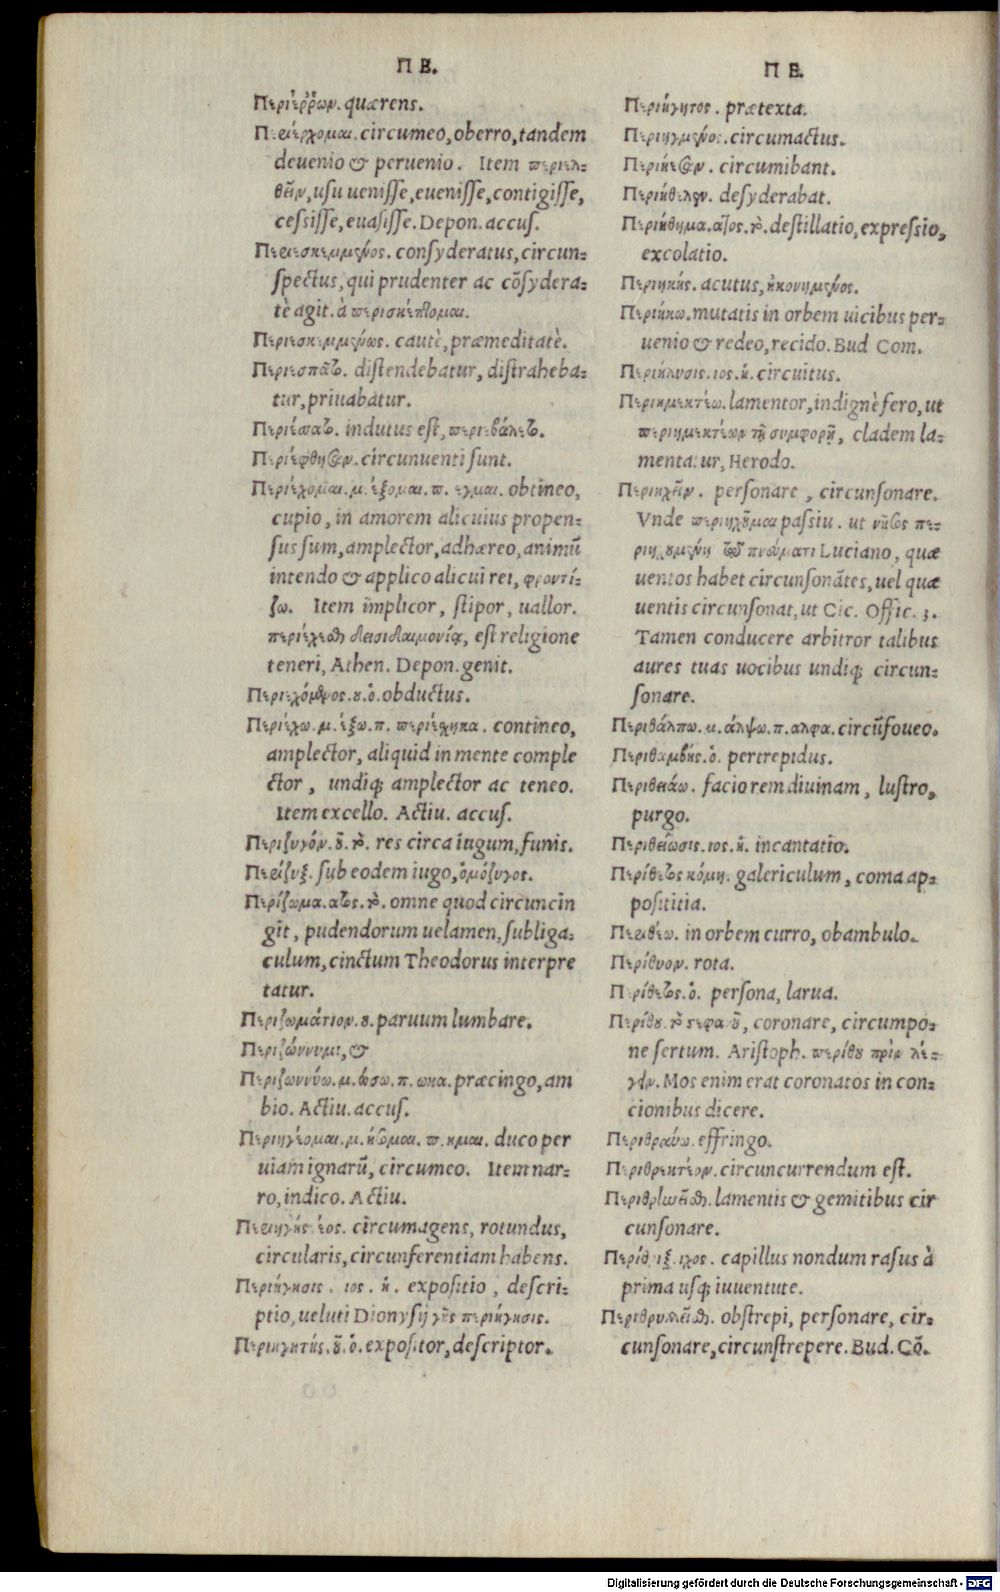 Π Ε.
Περιέῤῥων. quærens.
Περιέρχομαι. circumeo, oberro, tandem
deuenio & peruenio. Item περιελ-
θεῖν, usu uenisse, euenisse, contigisse,
cessisse, euasisse. Depon. accus.
Περιεσκεμμένος. consyderatus, circun-
spectus, qui prudenter ac cõsydera-
tè agit. à περισκέπτομαι.
Περιεσκεμμένως. cautè, præmeditatè.
Περιεσπᾶτο. distendebatur, distraheba-
tur, priuabatur.
indutus est, περιεβάλετο.
Περιέφθησαν. circunuenti sunt.
Περιέχομαι. μ. έξομαι. π. εγμαι. obtineo,
cupio, in amorem alicuius propen-
sus sum, amplector, adhæreo, animũ
intendo & applico alicui rei, φροντί-
ζω. Item implicor, stipor, uallor.
περιέχεσθαι δεισιδαιμονίᾳ, est religione
teneri, Athen. Depon. genit.
Περιεχόμενος. ου. ὁ. obductus.
Περιέχω. μ. έξω. π. περιέσχηκα. contineo,
amplector, aliquid in mente comple
ctor, undiq; amplector ac teneo.
Item excello. Actiu. accus.
Περιζυγόν. οῦ. τὸ. res circa iugum, funis.
Περίζυξ. sub eodem iugo, ὁμόζυγος.
Περίζωμα. ατος. τὸ. omne quod circuncin
git, pudendorum uelamen, subliga-
culum, cinctum Theodorus interpre
tatur.
Περιζωμάτιον. ου. paruum lumbare.
Περιζώννυμι, &
Περιζωννύω. μ. ώσω. π. ωκα. præcingo, am
bio. Actiu. accus.
Περιηγέομαι. μ. ήσομαι. π. ημαι. duco per
uiam ignarũ, circumeo. Item nar-
ro, indico. Actiu.
Περιηγής. έος. circumagens, rotundus,
circularis, circunferentiam habens.
Περιήγησις. ιος. ἡ. expositio, descri-
ptio, ueluti Dionysij γῆς περιήγησις.
Περιηγητής. οῦ. ὁ. expositor, descriptor.
Π Ε.
Περιήγητος. prætexta.
Περιηγμένος. circumactus.
Περιήεσαν. circumibant.
Περιήθελεν. desyderabat.
Περιήθημα. ατος. τὸ. destillatio, expressio,
excolatio.
Περιηκής. acutus, ἠκονημένος.
Περιήκω. mutatis in orbem uicibus per-
uenio & redeo, recido. Bud Com.
Περιήλυσις. ιος. ἡ. circuitus.
Περιημεκτέω. lamentor, indignè fero, ut
περιημεκτέων τῇ συμφορῇ, cladem la-
mentatur, Herodo.
Περιηχεῖν. personare, circunsonare.
Vnde περιηχοῦμαι passiu. ut νῆσος πε-
ριηχουμένη τῷ πνεύματι Luciano, quæ
uentos habet circunsonãtes, uel quæ
uentis circunsonat, ut Cic. Offic. 3.
Tamen conducere arbitror talibus
aures tuas uocibus undiq; circun-
sonare.
Περιθάλπω. μ. άλψω. π. αλφα. circũfoueo.
Περιθαμβής. ὁ. pertrepidus.
Περιθειάω. facio rem diuinam, lustro,
purgo.
Περιθείωσις. ιος. ἡ. incantatio.
Περίθετος κόμη. galericulum, coma ap-
posititia.
Περιθέω. in orbem curro, obambulo.
Περίθυον. rota.
Περίθετος. ὁ. persona, larua.
Περίθου. τὸ στεφανοῦ, coronare, circumpo-
ne sertum. Aristoph. περίθου πρὶν λέ-
γειν. Mos enim erat coronatos in con-
cionibus dicere.
Περιθραύω. effringo.
Περιθρεκτέον. circuncurrendum est.
Περιθρηνεῖσθαι. lamentis & gemitibus cir
cunsonare.
Περίθριξ. ιχος. capillus nondum rasus à
prima usq; iuuentute.
Περιθρυλλεῖσθαι. obstrepi, personare, cir-
cunsonare, circunstrepere. Bud. Cõ.
Digitalisierung gefördert durch die Deutsche Forschungsgemeinschaft - DFG